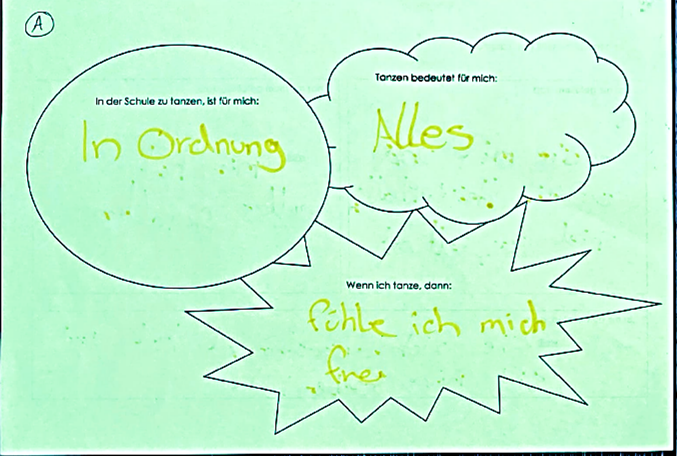 A
In der Schule zu tanzen, ist für mich:
In Ordnung
Tanzen bedeutet für mich:
Alles
Wenn ich tanze, dann:
fühle ich mich
frei